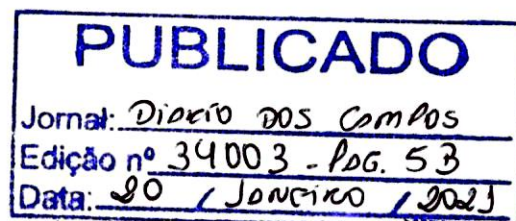 PUBLICADO
Jornal: Diário dos Campos
Edição nº 34003 - Pág. 5B
Data: 20 / Janeiro / 2021